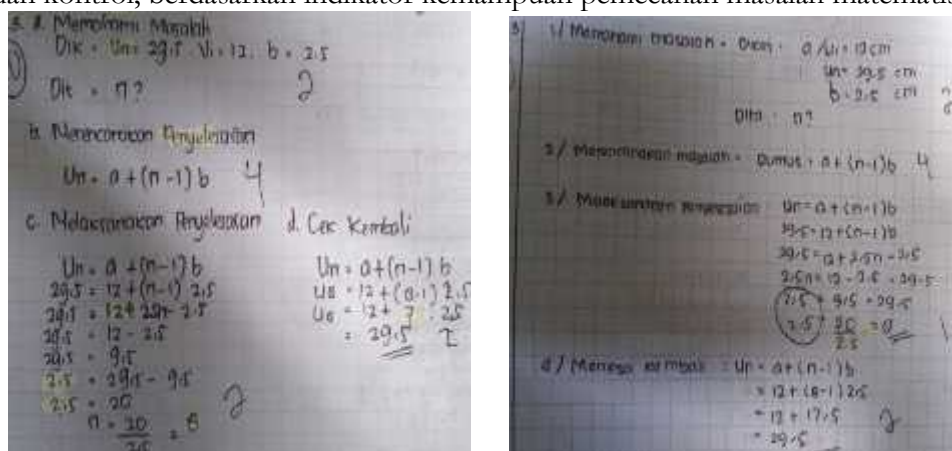 dan kontrol, berdasarkan indikator kemampuan pemecahan masalah matematis
3. a. Memahami Masalah
Dik = Un = 29.5 . U1 = 12. b = 2.5
Dit = n?
2
b. Merencanakan Penyelesaian
Un = a + (n-1) b
4
c. Melaksanakan Penyelesaian
Un = a + (n-1) b
29.5 = 12 + (n-1) 2.5
29.5 = 12 +
2.5
29.5 = 12 - 2.5
29.5 = 9.5
2.5 = 29.5 - 9.5
2.5 = 20
n = 20 = 8
2.5
2
d. Cek Kembali
Un = a + (n-1) b
U8 = 12 + (8-1) 2.5
= 12 + 7 . 2.5
= 29.5
3)
1/ Memahami masalah = Dik : a /U1 = 12 cm
Un = 29.5 cm
b = 2.5 cm
Dita : n?
2/ masalah = Rumus : a + (n-1) b
4
3/ Un = a + (n-1) b
29.5 = 12 + (n-1) b
29.5 = a + 2.5n - 2.5
2.5n = 12 - 2.5 = 29.5
2.5 9.5 = 29.5
2.5 20 = 8
2.5
4/ kembali = Un = a + (n-1) b
= 12 + (8-1) 2.5
= 12 + 17.5
= 29.5
2